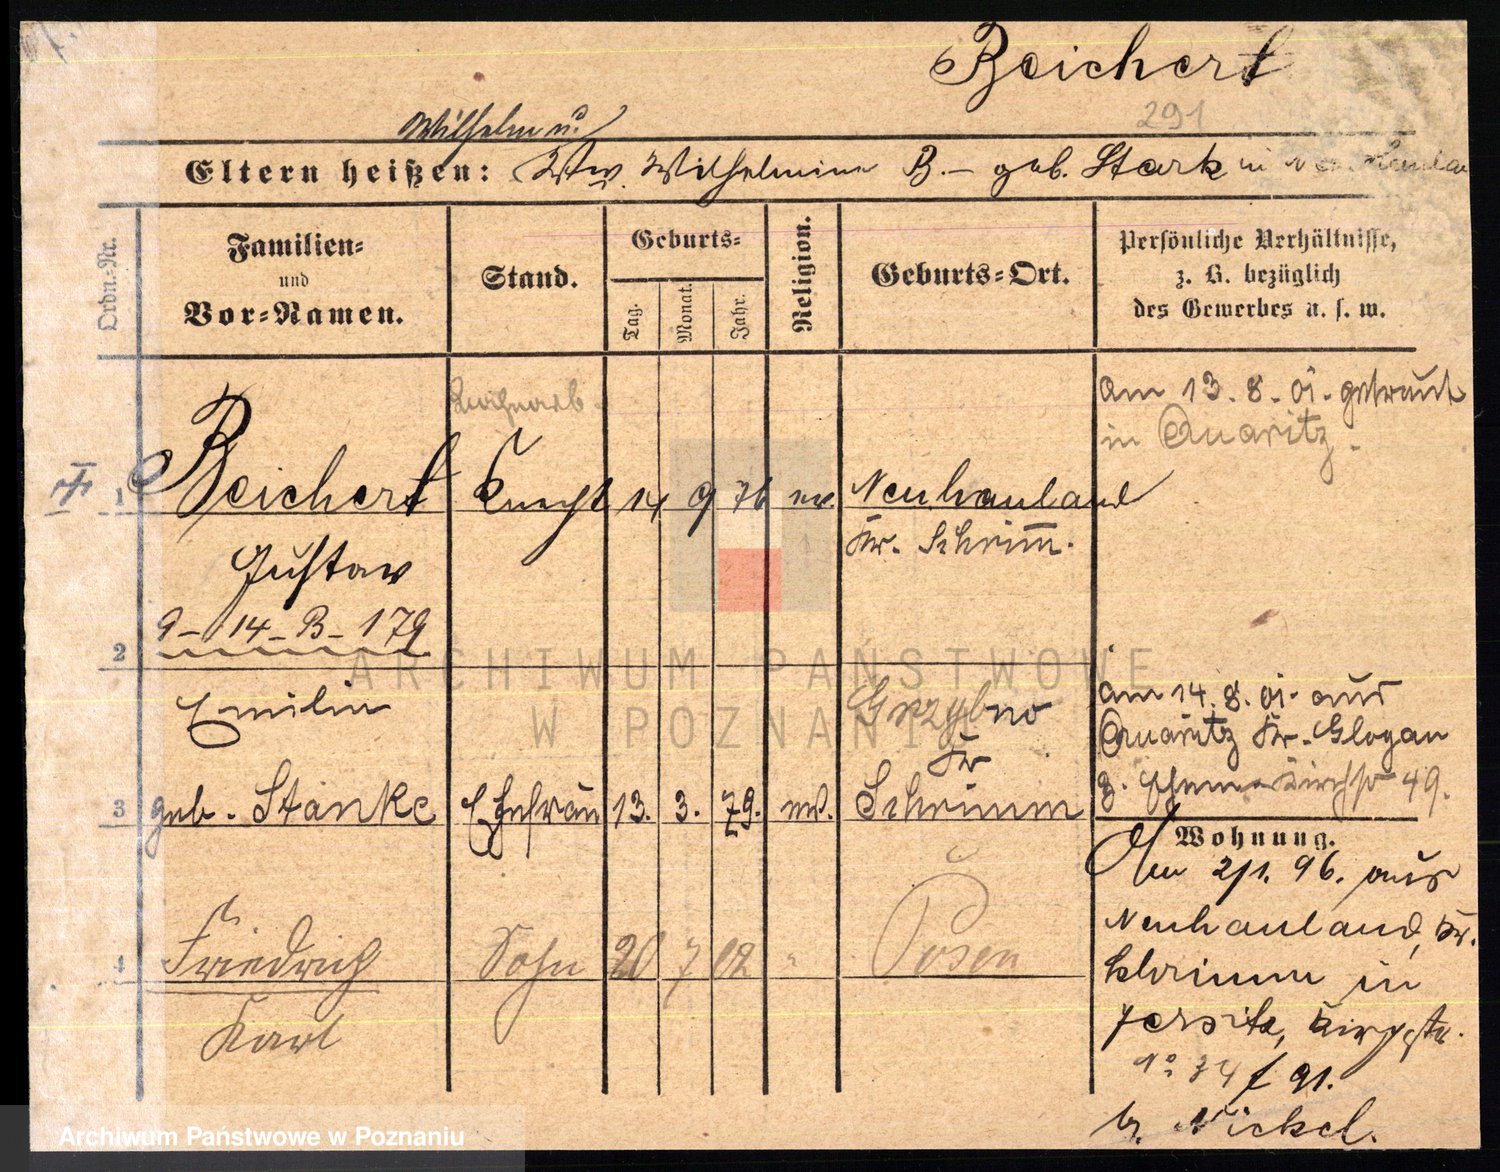 Beichert
291
Wilhelm u.
Eltern heißen: Ww. Wilhelmine B. – geb. Stark in
Ordn.-Nr.
Familien-
und
Vor-Namen.
Stand.
Geburts-
Tag.
Monat.
Jahr.
Religion.
Geburts-Ort.
Persönliche Verhältnisse,
z. B. bezüglich
des Gewerbes u. s. w.
am 13. 8. 01. getraut
in Quaritz.
1 Beichert Knecht 14 9 76 ev. Neuhauland
Kr. Schrimm.
Gustav
9 – 14 – B – 179
2
Emilie Grzybno
Kr
am 14. 8. 01. aus
Quaritz Kr. Glogau
49.
3 geb. Stanke Ehefrau 13. 3. 79. ev. Schrimm
Wohnung.
Am 2/1. 96. aus
Neuhauland, Kr.
Schrimm in
Jersitz, Kirchstr.
No 34 f 91.
b. Nickel.
4 Friedrich Sohn 20 7 02 " Posen
Karl
ARCHIWUM PAŃSTWOWE
W POZNANIU
Archiwum Państwowe w Poznaniu